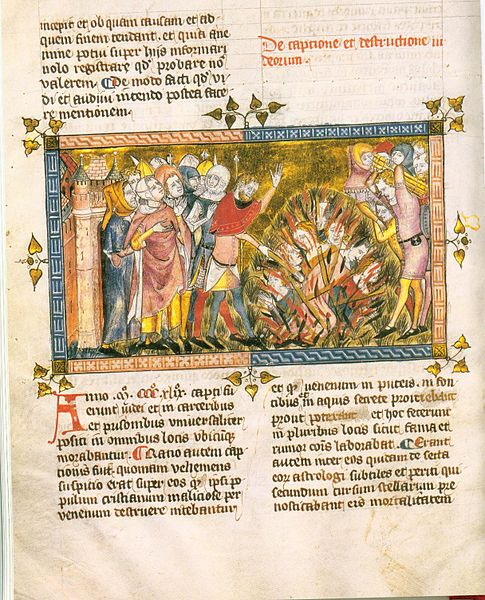 incepit et ob quam causam et ad
quem finem tendant. et quia
mine potui super hijs informari
nolo registrare qd' probare no
valerem. De modo facti qd' vi
di et audiui intendo postea face
re mentionem.
De captione et destructione iu
deorum.
Anno .M. CCC. xlix. capti fu
erunt iudei et in carceribus
et prisonibus vniuersaliter
positi in omnibus locis vbicuq;
morabantur. Ratio autem cap
tionis fuit. quoniam vehemens
suspitio erat super eos q' ipsi po
pulum cristianum maliciose per
venenum destruere intebantur
et q' venenum in puteis. in fon
tibus in aquis secrete
prout poterant et hoc fecerunt
in pluribus locis sicut fama et
rumor co͞is laborabat. Erant
autem inter eos quidam de secta
eor astrologi subtiles et periti qui
secundum cursum stellarum pre
nosticabant eis mortalitatem